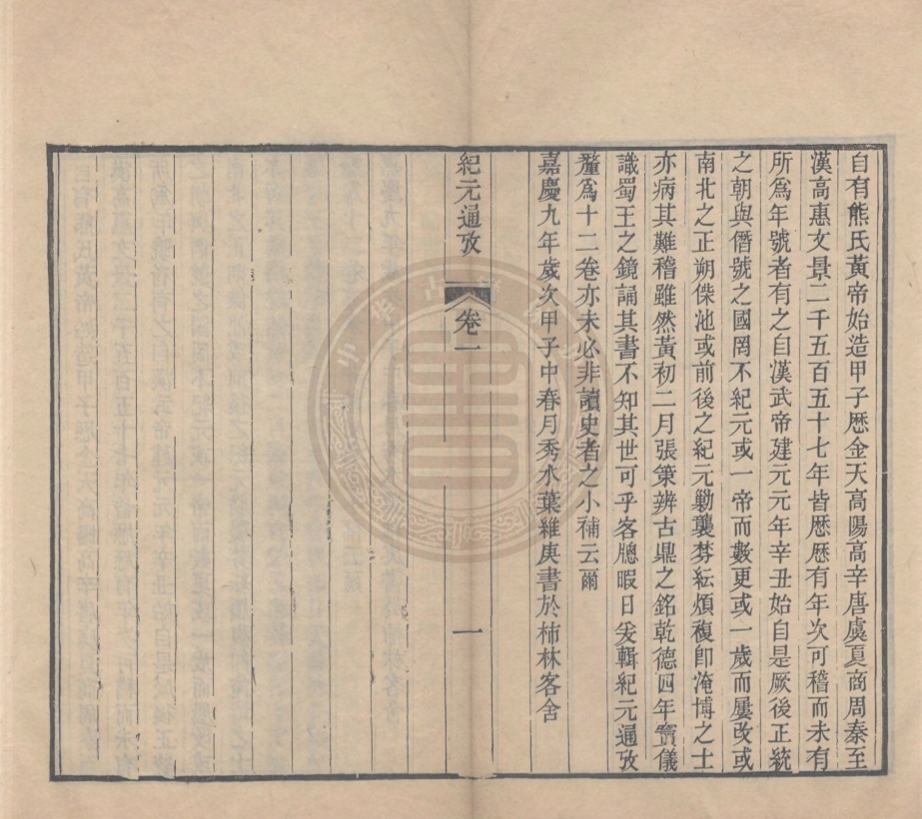 自有熊氏黃帝始造甲子厯金天高陽高辛唐虞夏商周秦至
漢高惠文景二千五百五十七年皆厯厯有年次可稽而未有
所爲年號者有之自漢武帝建元元年辛丑始自是厥後正統
之朝與僭號之國罔不紀元或一帝而數更或一歲而屢改或
南北之正朔傑池或前後之紀元勦襲棼紜煩複卽淹博之士
亦病其難稽雖然黃初二月張策辨古鼎之銘乾德四年竇儀
識蜀王之鏡誦其書不知其世可乎客牕暇日爰輯紀元通攷
釐爲十二卷亦未必非讀史者之小補云爾
嘉慶九年歲次甲子中春月秀水葉維庚書於柿林客舍
紀元通攷
卷一
一